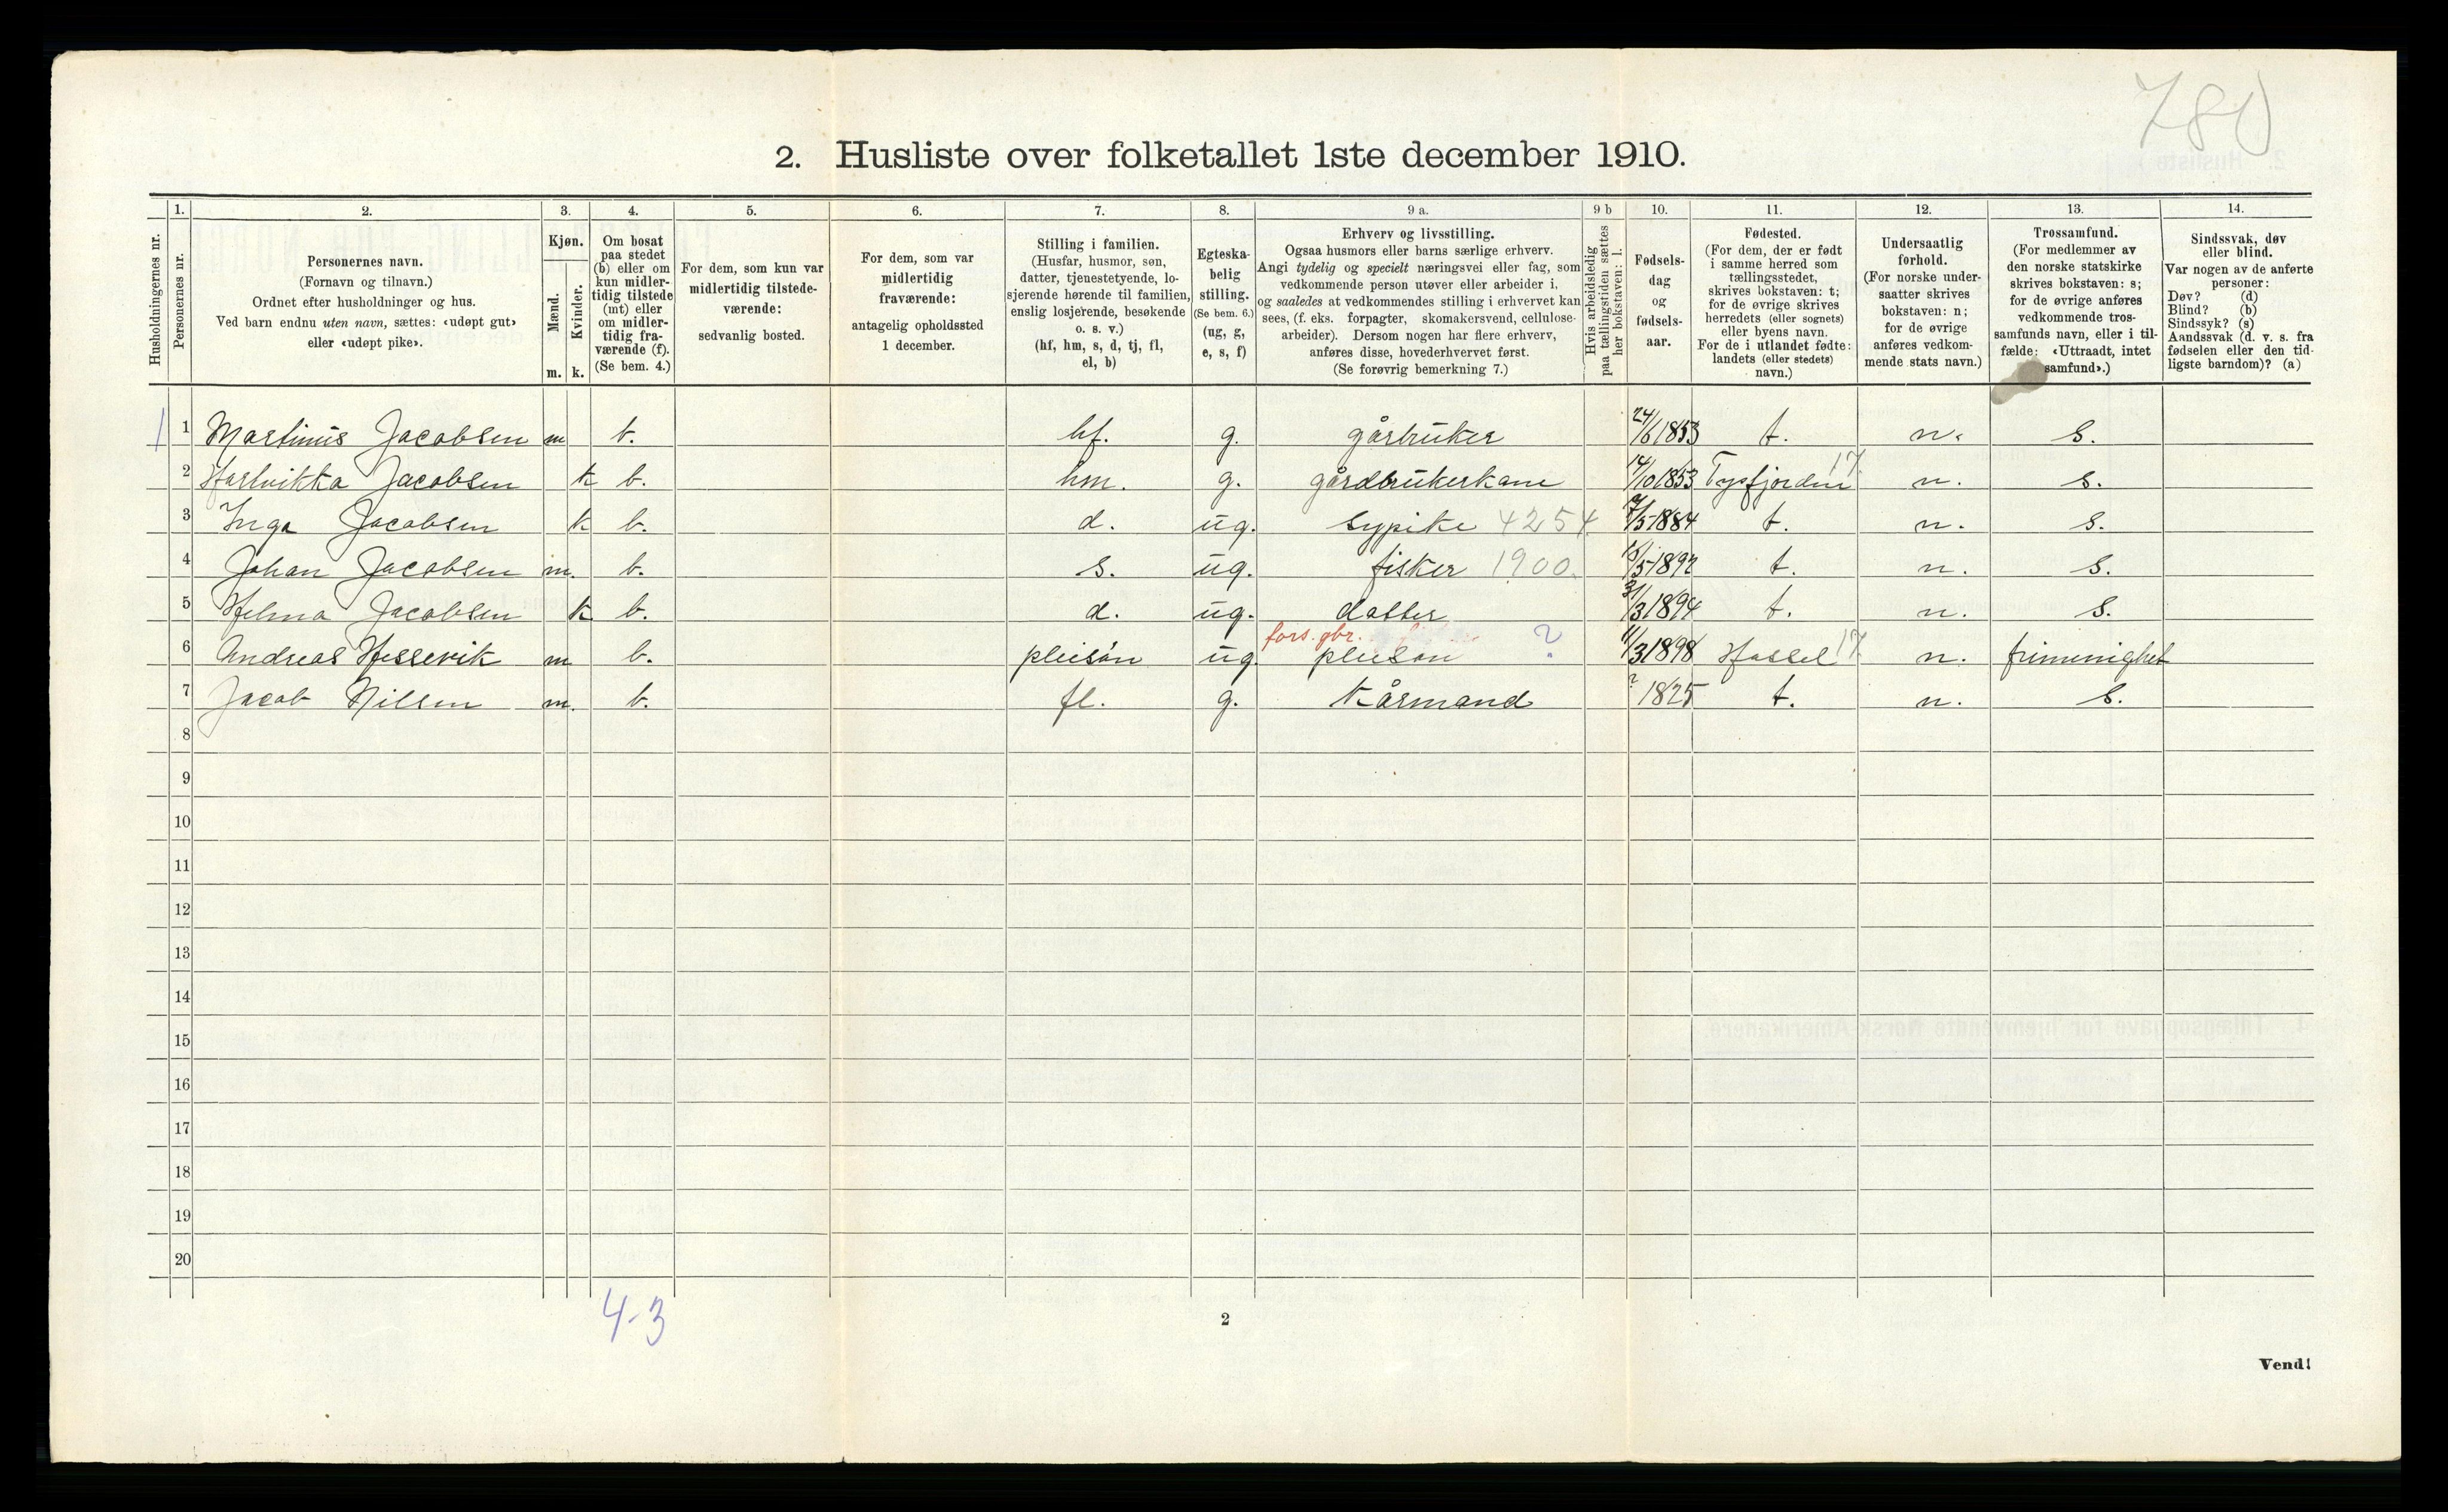 780
2. Husliste over folketallet 1ste december 1910.
Husholdningernes nr.
1.
Personernes nr.
2.
Personernes navn.
(Fornavn og tilnavn.)
Ordnet efter husholdninger og hus.
Ved barn endnu uten navn, sættes: «udøpt gut»
eller «udøpt pike».
3.
Kjøn.
Mænd.
Kvinder.
m. k.
4.
Om bosat
paa stedet
(b) eller om
kun midler-
tidig tilstede
(mt) eller
om midler-
tidig fra-
værende (f).
(Se bem. 4.)
5.
For dem, som kun var
midlertidig tilstede-
værende:
sedvanlig bosted.
6.
For dem, som var
midlertidig
fraværende:
antagelig opholdssted
1 december.
7.
Stilling i familien.
(Husfar, husmor, søn,
datter, tjenestetyende, lo-
sjerende hørende til familien,
enslig losjerende, besøkende
o. s. v.)
(hf, hm, s, d, tj, fl,
el, b)
8.
Egteska-
belig
stilling.
(Se bem. 6.)
(ug, g,
e, s, f)
9 a.
Erhverv og livsstilling.
Ogsaa husmors eller barns særlige erhverv.
Angi tydelig og specielt næringsvei eller fag, som
vedkommende person utøver eller arbeider i,
og saaledes at vedkommendes stilling i erhvervet kan
sees, (f. eks. forpagter, skomakersvend, cellulose-
arbeider). Dersom nogen har flere erhverv,
anføres disse, hovederhvervet først.
(Se forøvrig bemerkning 7.)
9 b
Hvis arbeidsledig
paa tællingstiden sættes
her bokstaven: l.
10.
Fødsels-
dag
og
fødsels-
aar.
11.
Fødested.
(For dem, der er født
i samme herred som
tællingsstedet,
skrives bokstaven: t;
for de øvrige skrives
herredets (eller sognets)
eller byens navn.
For de i utlandet fødte:
landets (eller stedets)
navn.)
12.
Undersaatlig
forhold.
(For norske under-
saatter skrives
bokstaven: n;
for de øvrige
anføres vedkom-
mende stats navn.)
13.
Trossamfund.
(For medlemmer av
den norske statskirke
skrives bokstaven: s;
for de øvrige anføres
vedkommende tros-
samfunds navn, eller i til-
fælde: «Uttraadt, intet
samfund».)
14.
Sindssvak, døv
eller blind.
Var nogen av de anførte
personer:
Døv? (d)
Blind? (b)
Sindssyk? (s)
Aandssvak (d. v. s. fra
fødselen eller den tid-
ligste barndom)? (a)
1 1 Martinus Jacobsen m b. hf. g. gårbruker 24/6 1853 t. n. s.
2 Hartvikka Jacobsen k b. hm. g. gårdbrukerkone 14/10 1853 Tysfjorden 17 n. s.
3 Inga Jacobsen k b. d. ug. sypike 4254 /5 1884 t. n. s.
4 Johan Jacobsen m. b. s. ug. fisker 1900. 15/5 1892 t. n. s.
5 Helma Jacobsen k b. d. ug. datter 31/3 1894 t. n. s.
fors. gbr. ?
6 Andreas Hessevik m b. pleisøn ug pleisøn 11/3 1898 Hassel 17 n. frimenighet
7 Jacob Nilsen m. b. fl. g. kårmand ? 1825 t. n. s.
8
9
10
11
12
13
14
15
16
17
18
19
20
4-3
2
Vend!